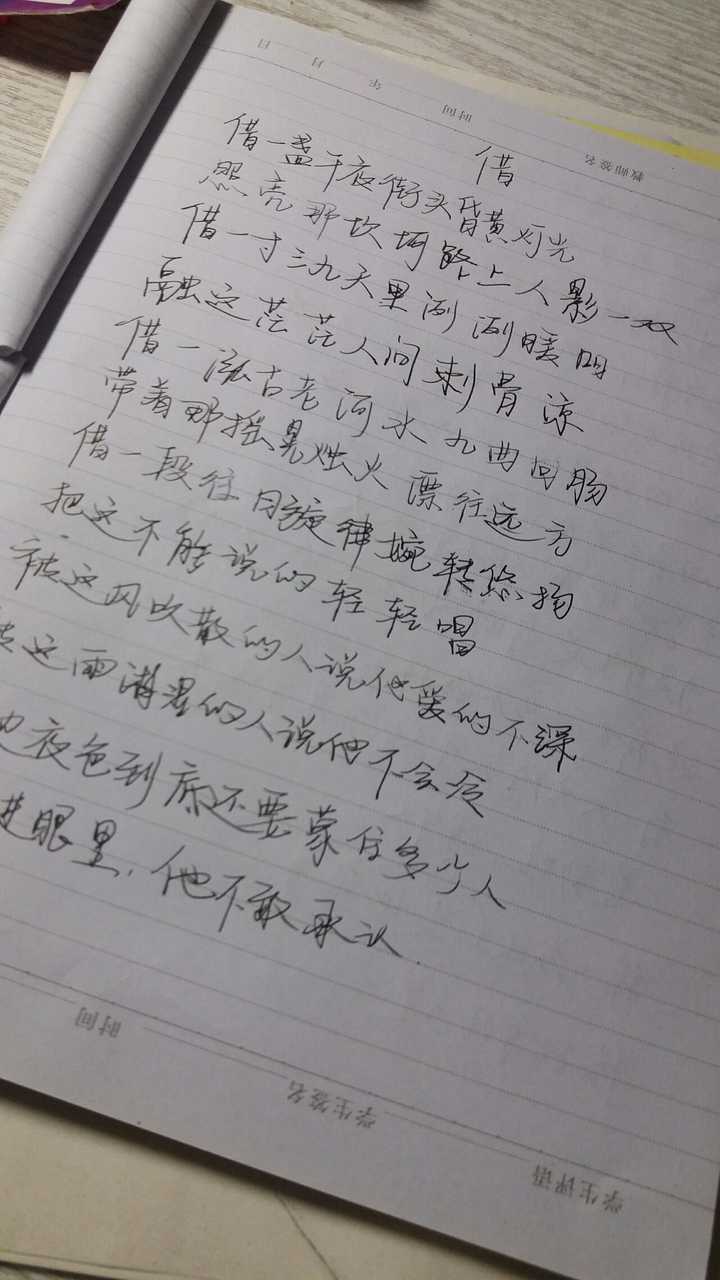 年 月 日
时间
教师签名
借
借一盏午夜街头昏黄灯光
照亮那坎坷路上人影一双
借一寸三九天里冽冽暖阳
融这茫茫人间刺骨凉
借一泓古老河水九曲回肠
带着那摇晃烛火漂往远方
借一段往日旋律婉转悠扬
把这不能说的轻轻唱
被这风吹散的人说他爱的不深
被这雨淋湿的人说他不会冷
边夜色到底还要蒙住多少人
进眼里,他不敢承认
时间
学生签名
学生评语